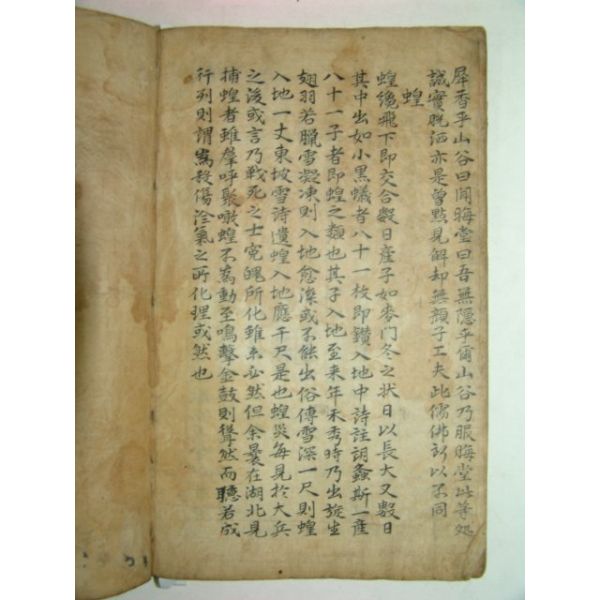 犀香乎山谷曰聞晦堂曰吾無隱乎爾山谷乃服晦堂此等処
誠實脫洒亦是曾點見解却無顏子工夫此儒佛所以不同
蝗
蝗纔飛下即交合數日產子如麥門冬之狀日以長大又數日
其中出如小黑蟻者八十一枚即鑽入地中詩註謂螽斯一產
八十一子者即蝗之類也其子入地至来年禾秀時乃出旋生
翅羽若臘雪凝凍則入地愈深或不能出俗傳雪深一尺則蝗
入地一丈東坡雪詩遺蝗入地應千尺是也蝗災每見於大兵
之後或言乃戰死之士冤魄所化雖未必然但余曩在湖北見
捕蝗者雖羣呼聚噉蝗不為動至鳴擊金鼓則聳然而聽若成
行列則謂為殺傷沴氣之所化理或然也